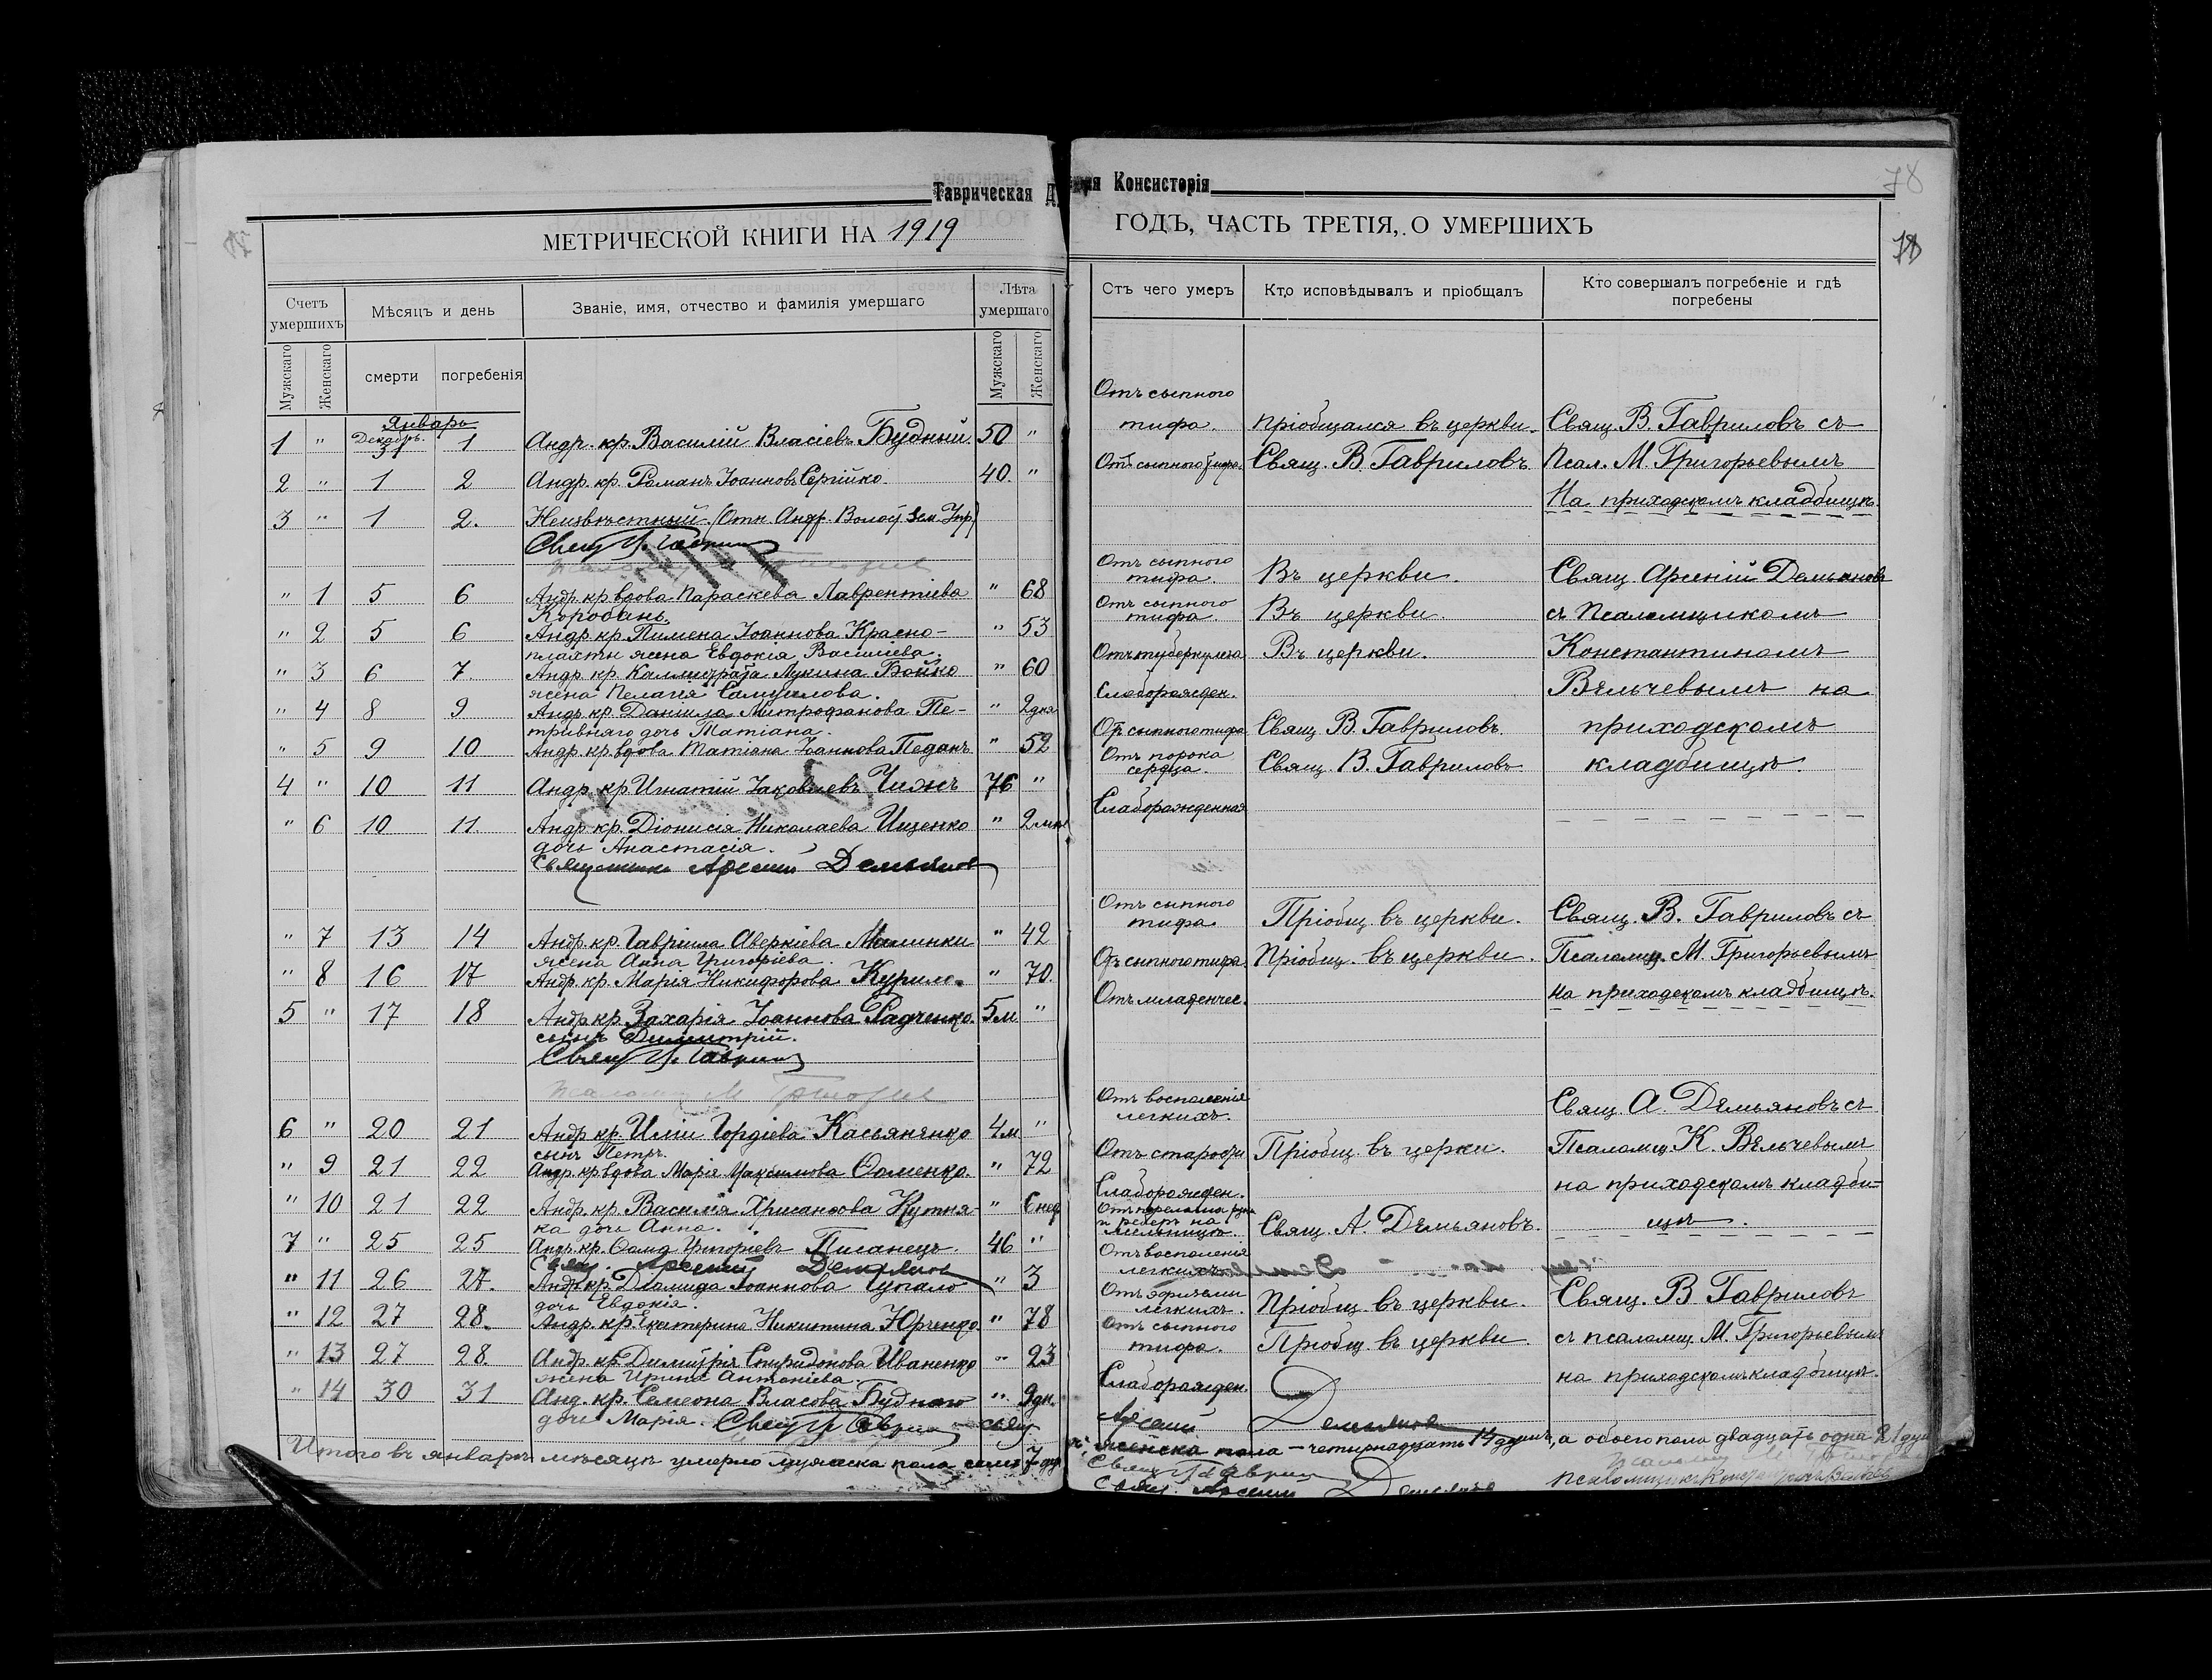 Таврическая Д
ная Консисторія
78
МЕТРИЧЕСКОЙ КНИГИ НА 1919
ГОДЪ, ЧАСТЬ ТРЕТІЯ, О УМЕРШИХЪ
Счетъ умершихъ
Мѣсяцъ и день
Званіе, имя, отчество и фамилія умершаго
Лѣта умершаго
Отъ чего умеръ
Кто исповѣдывалъ и пріобщалъ
Кто совершалъ погребеніе и гдѣ погребены
Мужскаго
Женскаго
смерти
погребенія
Мужскаго
Женскаго
Январь
1 " Декабрь. 31 1 Андр. кр. Василій Власіевъ Будный. 50 "
2 " 1 2 Андр. кр. Романъ Іоанновъ Сергійко. 40. "
3 " 1 2. Неизвѣстный (Отн. Андр. Волост. Зем. Упр)
" 1 5 6 Андр. кр. вдова Параскева Лаврентіева " 68
Коробань.
" 2 5 6 Андр. кр. Пимена Іоаннова Красно- " 53
плахты жена Евдокія Васильева.
" 3 6 7. Андр. кр. Каллистрата Лукина Бойко " 60
жена Пелагія Самуилова.
" 4 8 9 Андр. кр. Даніила Митрофанова Пе- " 2 дня
тривняго дочь Татіана.
" 5 9 10 Андр. кр. вдова Татіана Іоаннова Педань " 52
4 " 10 11 Андр. кр. Игнатій Іаковлевъ Чижъ 76 "
" 6 10 11. Андр. кр. Діонисія Николаева Ищенко " 2 мѣс
дочь Анастасія.
Священникъ Арсеній Демьяновъ
" 7 13 14 Андр. кр. Гавріила Аверкіева Малинки " 42
жена Анна Григоріева.
" 8 16 17 Андр. кр. Марія Никифорова Курило. " 70.
5 " 17 18 Андр. кр. Захарія Іоаннова Радченко. 5 м. "
сынъ Димитрій.
6 " 20 21 Андр. кр. Иліи Гордіева Касьяненко 4 м "
сынъ Петръ.
" 9 21 22 Андр. кр. вдова Марія Максимова Ѳоменко. " 72
" 10 21 22 Андр. кр. Василія Хрисанѳова Кутня- " 6 нед
ка дочь Анна.
7 " 25 25 Андр. кр. Ѳома Григоріевъ Писанецъ. 46 "
Свящ. Арсеній Демьяновъ
" 11 26 27. Андр. кр. Діамида Іоаннова Цупало " 3
дочь Евдокія.
" 12 27 28. Андр. кр. Екатерина Никитина Юрченко " 78
" 13 27 28 Андр. кр. Димитрія Спиридонова Иваненко " 23
жена Ирина Антоніева.
" 14 30 31 Анд. кр. Симеона Власова Буднаго " 9 дн.
дочь Марія.
Итого въ январѣ мѣсяцѣ умерло мужеска пола семь 7 душ
Отъ сыпного
тифа. пріобщался въ церкви. Свящ. В. Гавриловъ съ
Отъ сыпного тифа. Свящ. В. Гавриловъ. Псал. М. Григорьевымъ
На приходскомъ кладбищѣ.
Отъ сыпного
тифа. Въ церкви. Свящ. Арсеній Демьяновъ
Отъ сыпного
тифа. Въ церкви. съ Псаломщикомъ
Отъ туберкулеза Въ церкви. Константиномъ
Слаборожден. Вяльчевымъ на
Отъ сыпного тифа Свящ. В. Гавриловъ. приходскомъ
Отъ порока
сердца. Свящ. В. Гавриловъ кладбищѣ.
Слаборожденная
Отъ сыпного
тифа Пріобщ. въ церкви. Свящ. В. Гавриловъ съ
Отъ сыпного тифа. Пріобщ. въ церкви. Псаломщ. М. Григорьевымъ
Отъ младенчес. на приходскомъ кладбищѣ.
Отъ воспаленія
легкихъ. Свящ. А. Демьяновъ съ
Отъ старости Пріобщ. въ церкви. Псаломщ. К. Вяльчевымъ
Слаборожден. на приходскомъ кладби-
на
мельницѣ. Свящ. А. Демьяновъ. щѣ.
Отъ воспаленія
легкихъ
Отъ эфиземы
легкихъ. Пріобщ. въ церкви. Свящ. В. Гавриловъ
Отъ сыпного
тифа. Пріобщ. въ церкви. съ псаломщ. М. Григорьевымъ
Слаборожден. на приходскомъ кладбищѣ.
Арсеній Демьяновъ
женска пола – четырнадцать 14 душъ, а обоего пола двадцать одна 21 душ
Свящ. Арсеній Демьяновъ